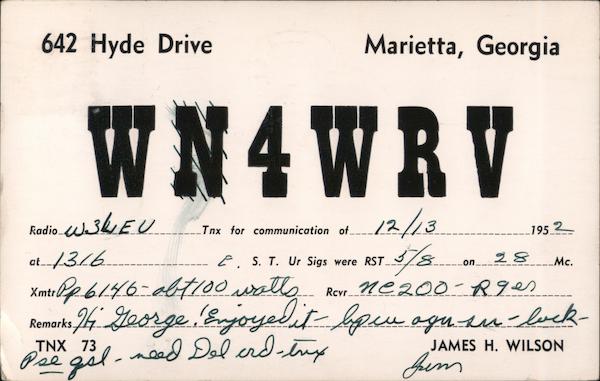 642 Hyde Drive Marietta, Georgia
WN4WRV
Radio W3 EU Tnx for communication of 12/13 1952
at 1316 E. S. T. Ur Sigs were RST 5/8 on 28 Mc.
Xmtr Pp 6146 - abt 100 watts Rcvr NC200 - R9er
Remarks Hi George! Enjoyed it - hpcu agn - luck -
TNX 73 JAMES H. WILSON
Pse qsl - need Del crd - tnx Jim